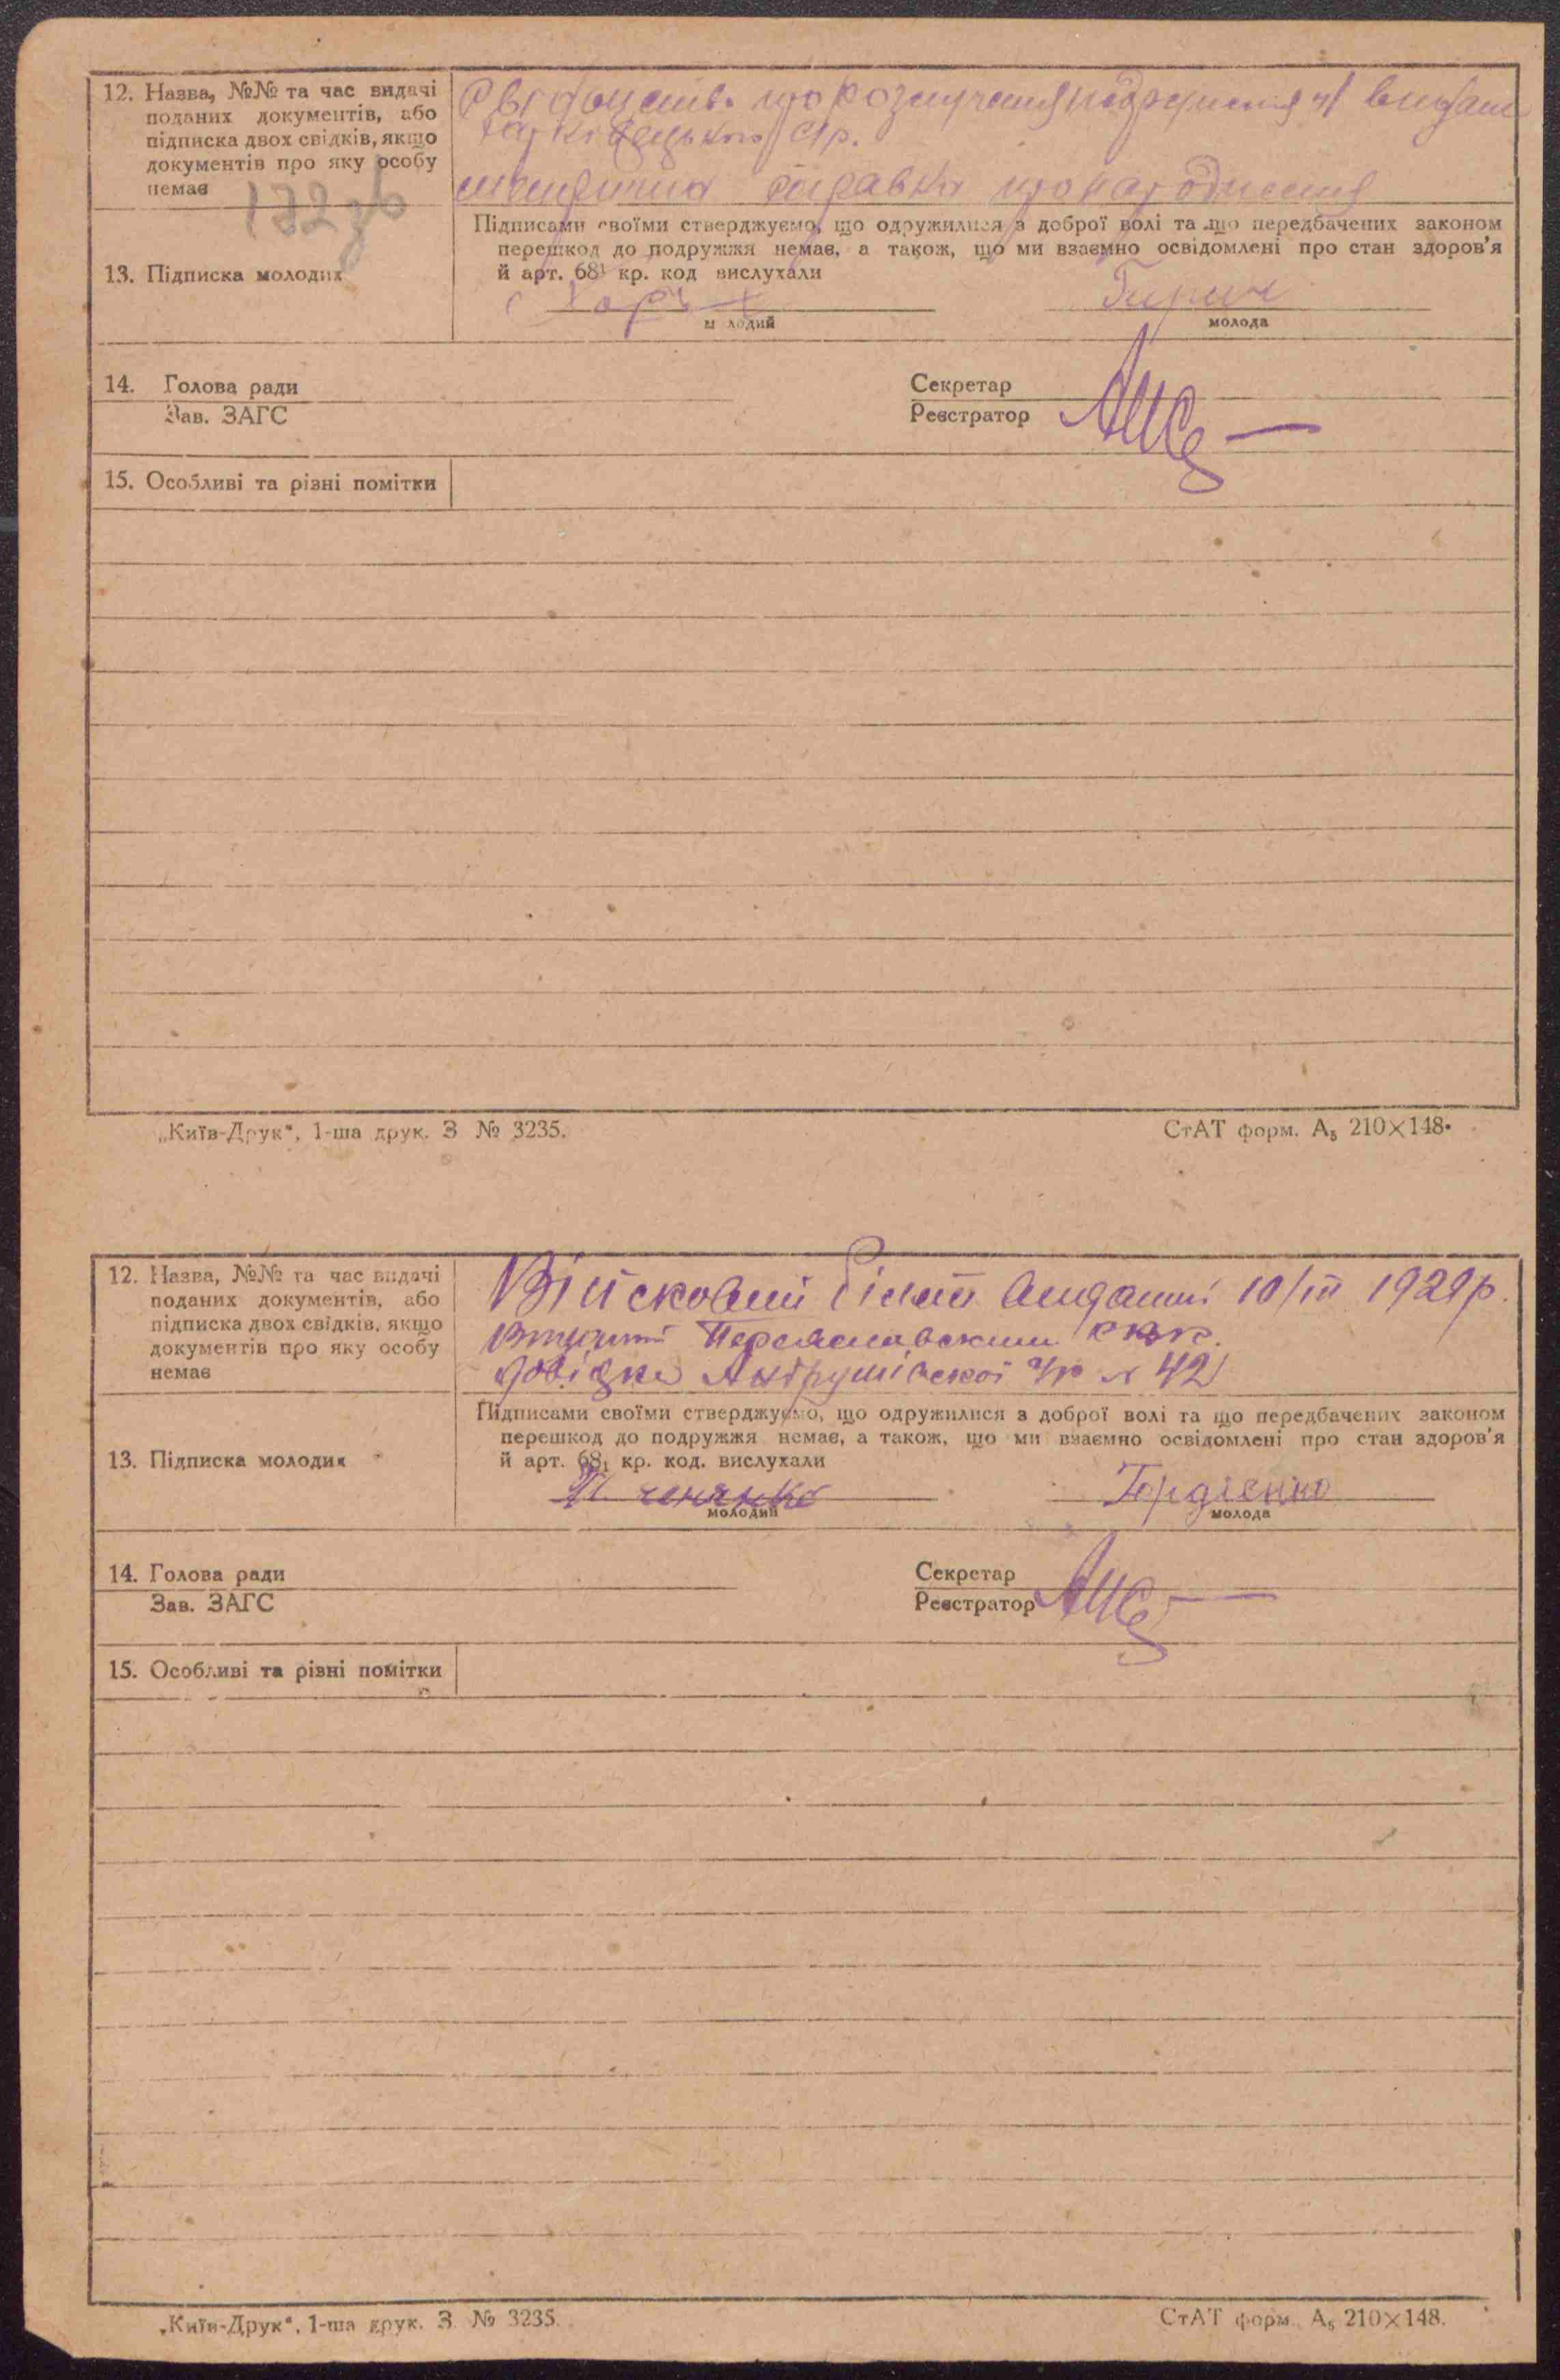 12. Назва, №№ та час видачі
поданих документів, або
підписка двох свідків, якщо
документів про яку особу
немає
132
про розлучення
справка про народження
13. Підписка молодих
Підписами своїми стверджуємо, що одружилися з доброї волі та що передбачених законом
перешкод до подружжя немає, а також, що ми взаємно освідомлені про стан здоров'я
й арт. 68¹ кр. код вислухали
молодий
молода
14. Голова ради
Зав. ЗАГС
Секретар
Реєстратор
15. Особливі та різні помітки
„Київ-Друк“, 1-ша друк. З № 3235.
СтАТ форм. А₅ 210×148.
12. Назва, №№ та час видачі
поданих документів, або
підписка двох свідків, якщо
документів про яку особу
немає
Війсковий білет виданий 10/III 1929 р.
Переяславським РВК.
довідка Андрушівської с/р № 42
13. Підписка молодих
Підписами своїми стверджуємо, що одружилися з доброї волі та що передбачених законом
перешкод до подружжя немає, а також, що ми взаємно освідомлені про стан здоров'я
й арт. 68₁ кр. код. вислухали
молодий
Гордієнко
молода
14. Голова ради
Зав. ЗАГС
Секретар
Реєстратор
15. Особливі та рівні помітки
„Київ-Друк“, 1-ша друк. З № 3235.
СтАТ форм. А₅ 210×148.